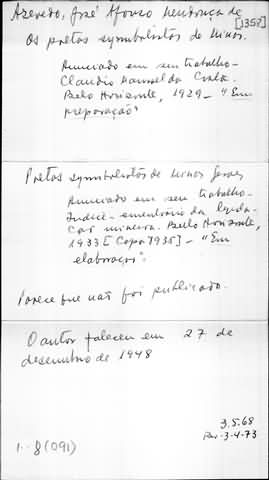 Azevedo, José Afonso Mendonça de
[1352]
Os poetas symbolistas de Minas.
Anunciado em seu trabalho-
Claudio Manuel da Costa.
Bello Horizonte, 1929 - "Em
preparação"
Poetas symbolistas de Minas Geraes
Anunciado em seu trabalho-
Indice - ementario da legisla-
ção mineira. Bello Horizonte,
1933 [Capa 1935] - "Em
elaboração".
Parece que não foi publicado.
O autor faleceu em 27 de
dezembro de 1948
3.5.68
Rev. 3-4-73
1-8(091)